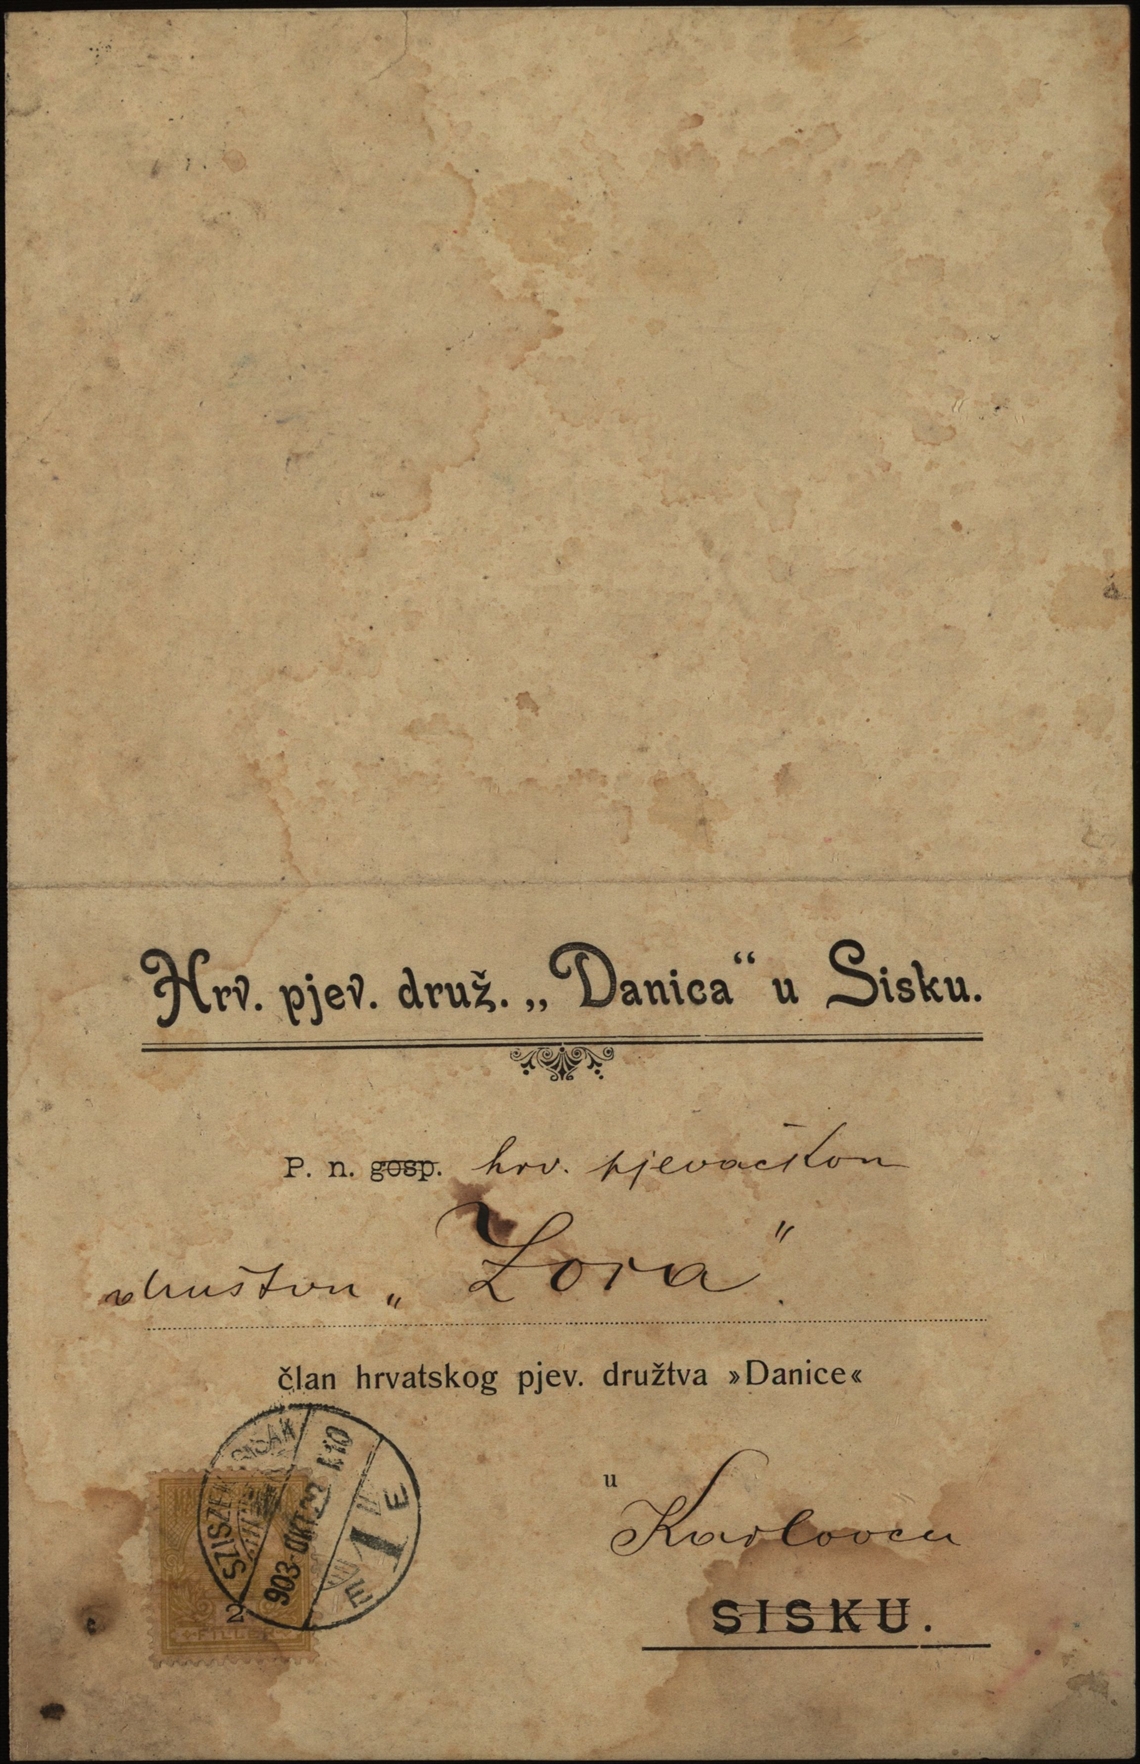 Hrv. pjev. druž. „Danica“ u Sisku.
P. n. gosp. hrv. pjevačkom
društvu „Zora“.
član hrvatskog pjev. družtva »Danice«
u
Karlovcu
SISKU.
SZISZEK SISAK
903 OKT 22
E 1 E
2
FILLER